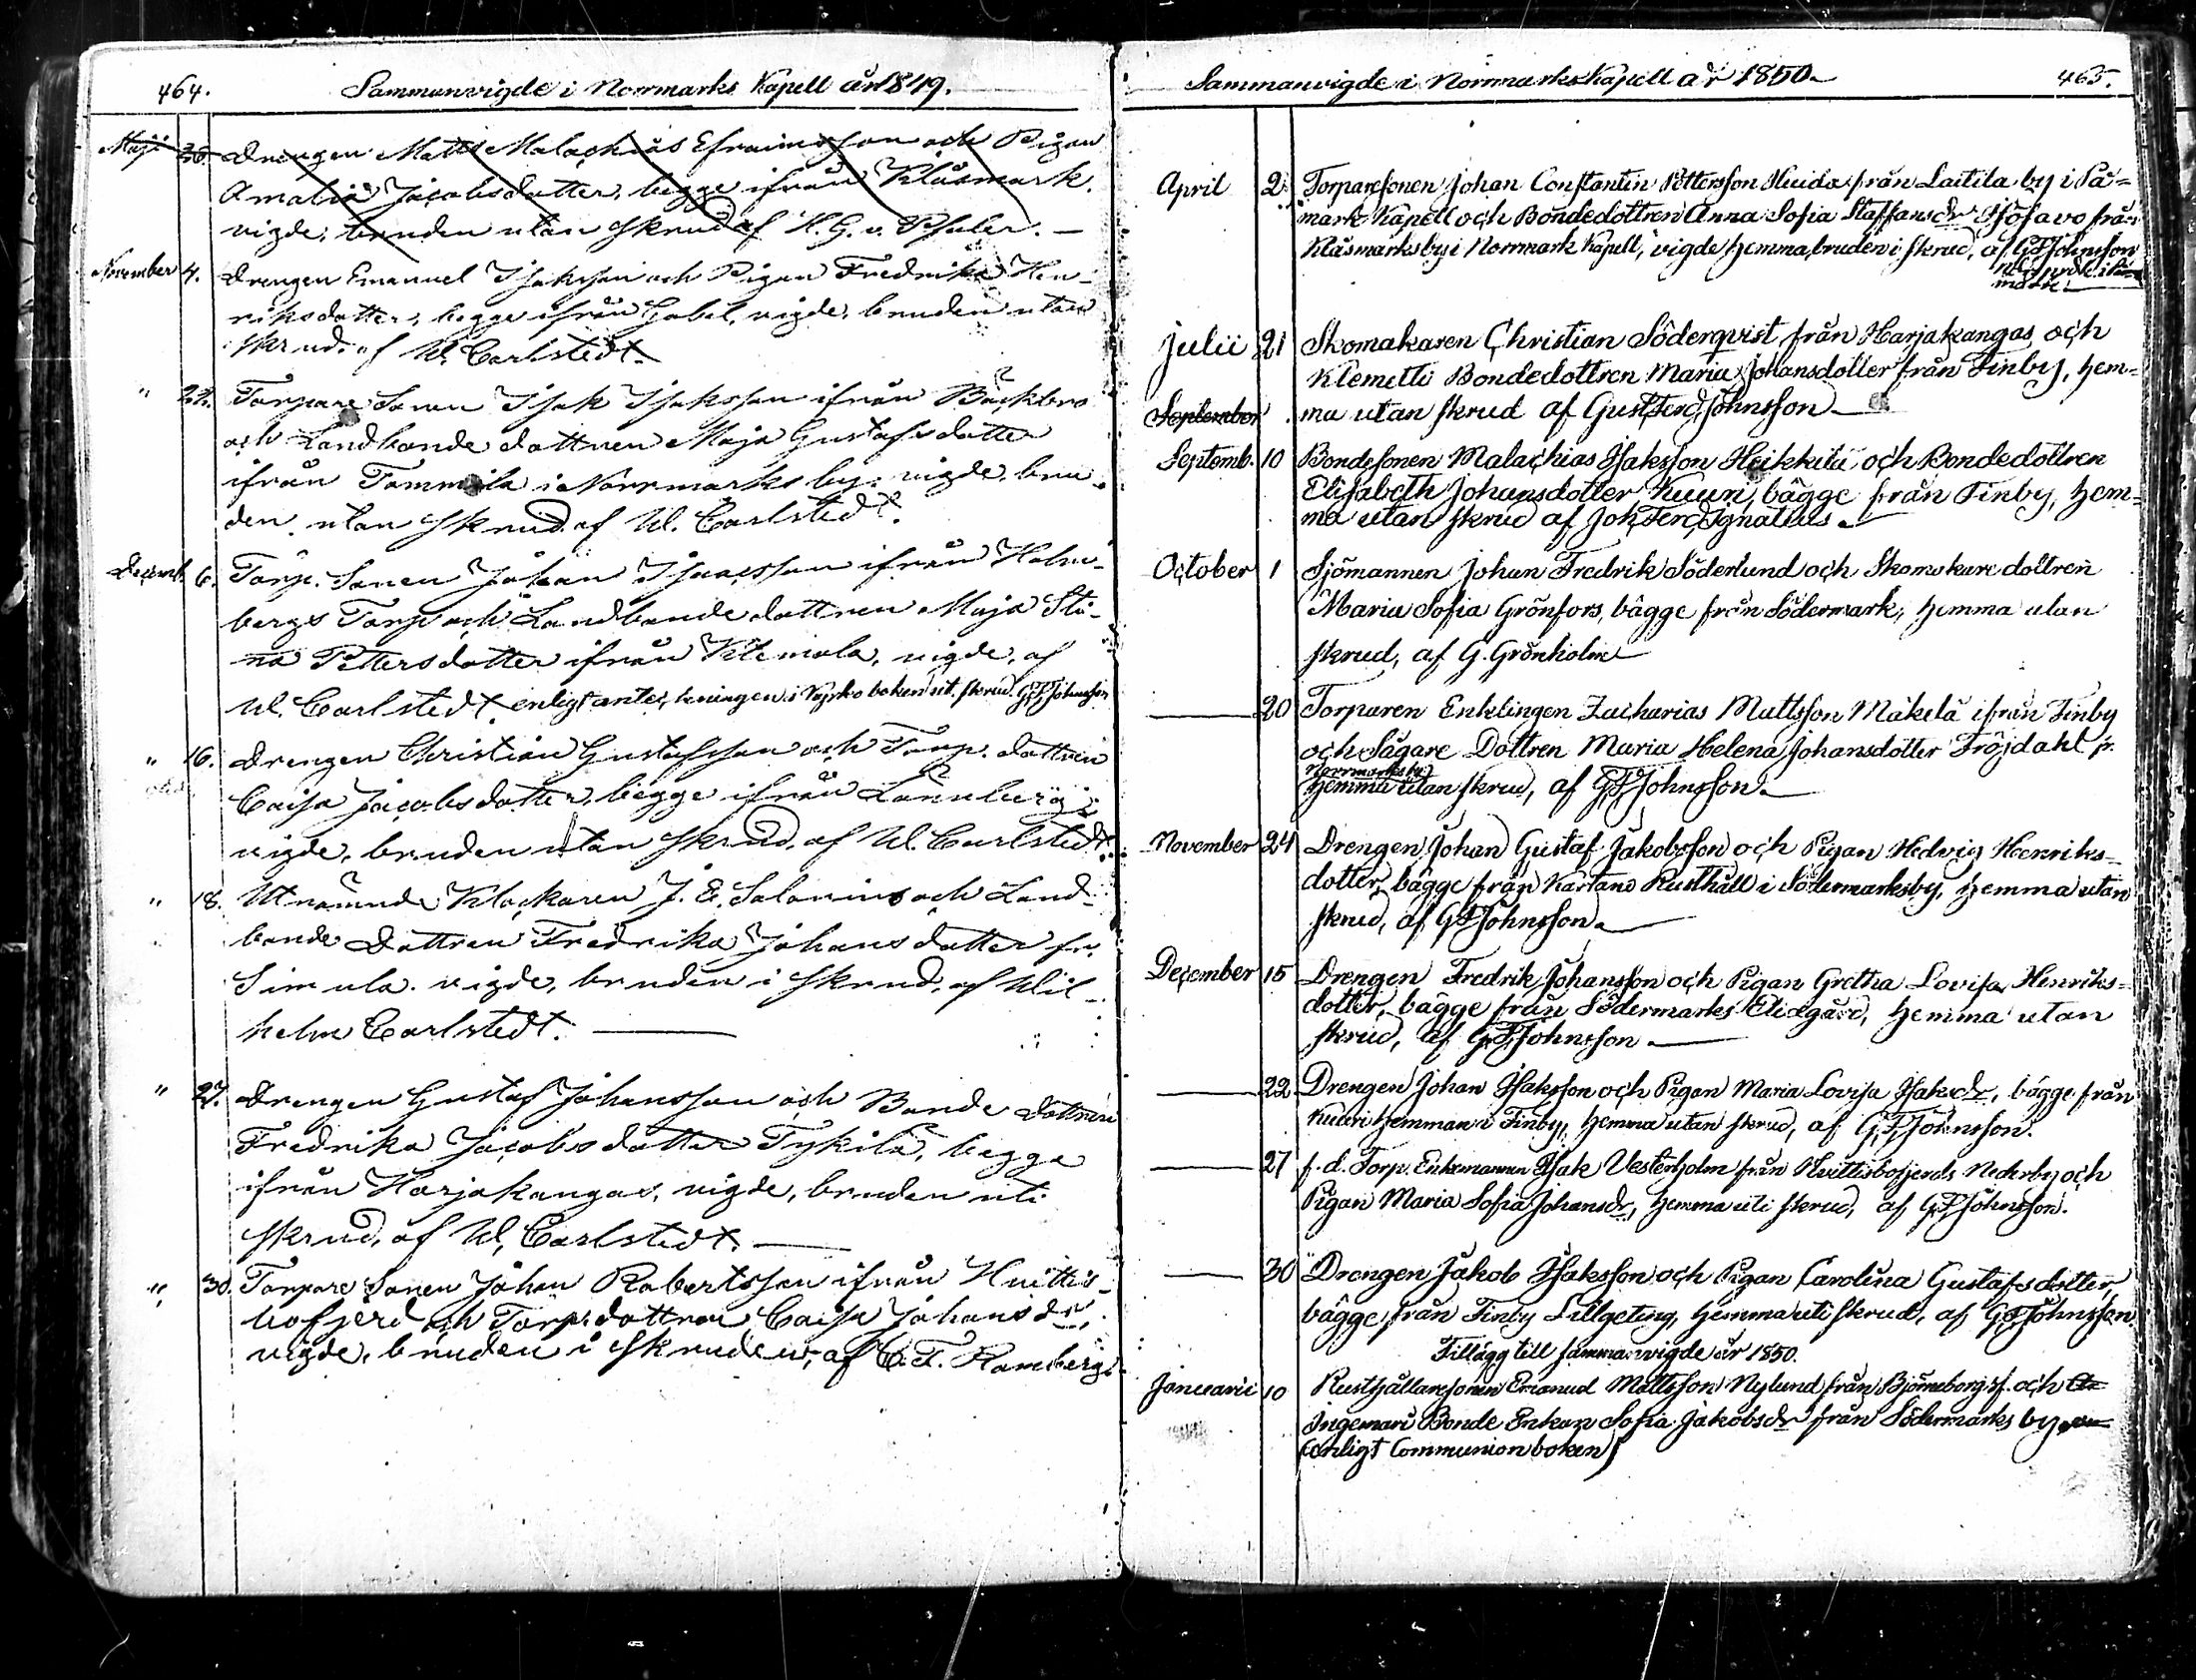 464. Sammanvigde i Norrmarks Kapell år 1849.
Maji 26. Drengen Matts Malachias Efraimsson och Pigan
Amalia Jacobsdotter, begge ifrån Klåsmark.
vigde, bruden utan skrud af H. G. v. Pfaler. —
November 4. Drengen Emanuel Isaksson och Pigan Fredrika Hen-
riksdotter, begge ifrån Gabel, vigde, bruden utan
skrud. af W. Carlstedt.
" 22. Torpare Sonen Isak Isaksson ifrån Bäckbro
och Landbonde dottren Maja Gustafsdotter
ifrån Tommila i Norrmarks by. vigde, bru-
den utan skrud. af W. Carlstedt.
Decemb. 6. Torp. Sonen Johan Isaacsson ifrån Holm-
bergs Torp och Landbonde dottren Maja Sti-
na Pettersdotter ifrån Klemola, vigde, af
W. Carlstedt enligt anteckningen i Kyrko boken ut. skrud. G F Johnsson
" 16. Drengen Christian Gustafsson och Torp. dottren
Caisa Jacobsdotter, begge ifrån Lönnberg
vigde, bruden utan skrud, af W. Carlstedt.
" 18. Utnämnde Klockaren J. E. Salonius och Land-
bonde Dottren Fredrika Johansdotter fr.
Simula. vigde, bruden i skrud, af Wil-
helm Carlstedt. —
" 27. Drengen Gustaf Johansson och Bonde dottren
Fredrika Jacobsdotter Tykilä, begge
ifrån Harjakangas, vigde, bruden uti
skrud, af W. Carlstedt. —
" 30. Torpare Sonen Johan Robertsson ifrån Hvittis-
bofjerd och Torp. dottren Caisa Johansdr,
vigde, bruden i skruden, af C. F. Ramberg.
Sammanvigde i Norrmarks Kapell år 1850. 465.
April 2 Torparesonen Johan Constantin Pettersson Huida från Laitila by i På=
mark Kapell och Bondedottren Anna Sofia Staffansdr Isotavo från
Klåsmarks by i Norrmark Kapell, vigde hemma, bruden i skrud, af G F Johnsson
mark.
Julii 21 Skomakaren Christian Söderqvist från Harjakangas och
Klemetti Bondedottren Maria Johansdotter från Finby, hem=
September ma utan skrud af Gust Ferd Johnsson —
Septemb. 10 Bondesonen Malachias Isaksson Heikkilä och Bondedottren
Elisabeth Johansdotter Kuuri, bägge från Finby, hem=
ma utan skrud af Joh Ferd Ignatius.
October 1 Sjömannen Johan Fredrik Söderlund och Skomakare dottren
Maria Sofia Grönfors, bägge från Södermark, hemma utan
skrud, af G. Grönholm
— 20 Torparen Enklingen Zacharias Mattsson Mäkelä ifrån Finby
och Sågare Dottren Maria Helena Johansdotter Fröjdahl fr.
Norrmarks by
hemma utan skrud, af G F Johnsson.
November 24 Drengen Johan Gustaf Jakobsson och Pigan Hedvig Henriks=
dotter, bägge från Kartano Rusthåll i Södermarksby, hemma utan
skrud, af G F Johnsson.
December 15 Drengen Fredrik Johansson och Pigan Gretha Lovisa Henriks=
dotter, bägge från Södermarks Elidgård, hemma utan
skrud, af G F Johnsson —
— 22 Drengen Johan Isaksson och Pigan Maria Lovisa Isaksdr, bägge från
Kuuri hemman i Finby, hemma utan skrud, af G F Johnsson.
— 27 f. d. Torp. Enkemannen Isak Vesterholm från Hvittisbofjerds Nederby och
Pigan Maria Sofia Johansdr, hemma uti skrud, af G F Johnsson.
— 30 Drengen Jakob Isaksson och Pigan Carolina Gustafsdotter,
bägge från Finby Lillgeting, hemma uti skrud, af G F Johnsson.
Tillägg till sammanvigde år 1850.
Januarii 10 Rusthållaresonen Emanuel Mattsson Nylund från Björneborgs s. och
Ingemari Bonde Enkan Sofia Jakobsdr från Södermarks by
(enligt Communion boken)